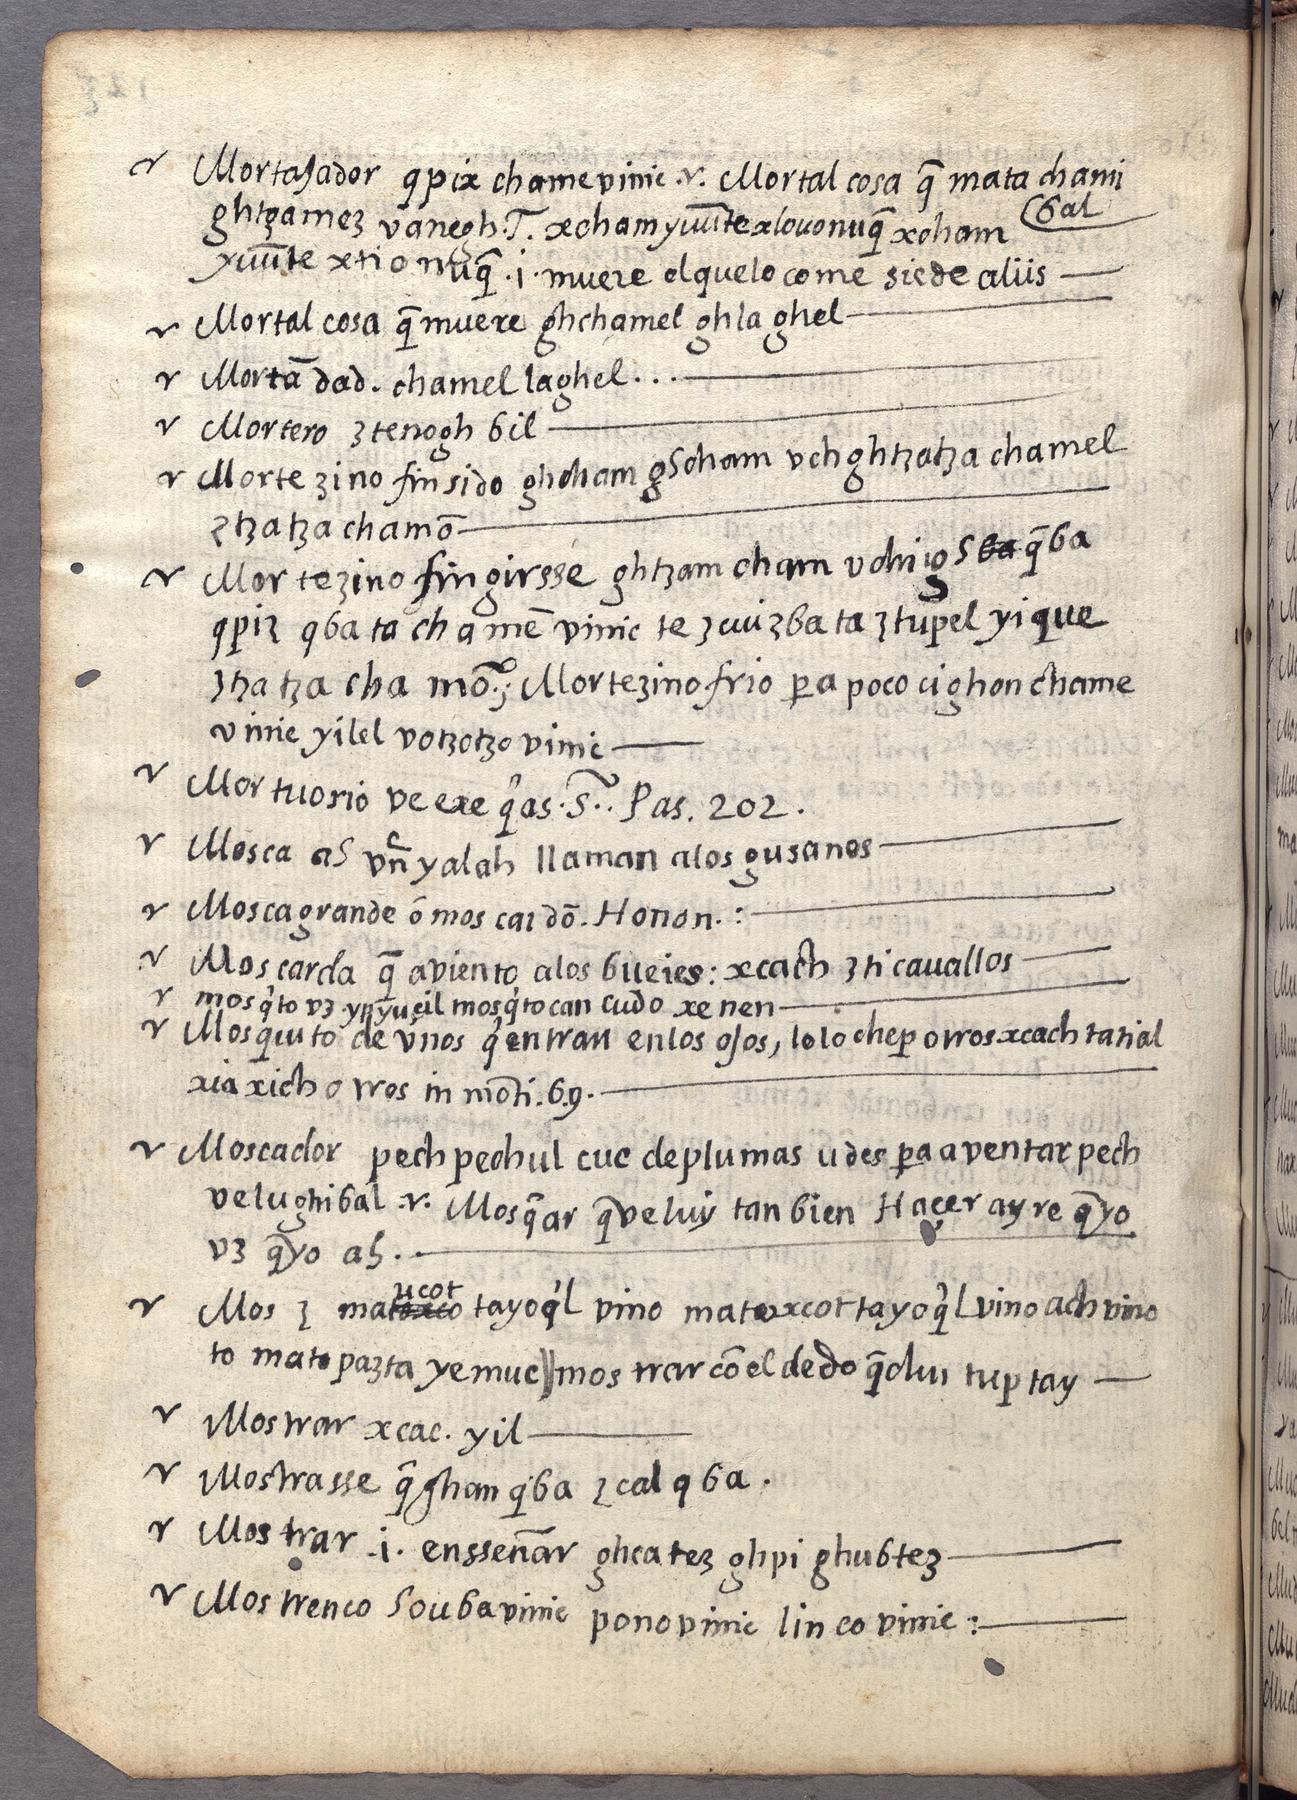 Mortajador qpix chamevinic .v. Mortal cosa q̃ mata chami
ghtzamez vanegh. T. xchamyuūte xlouonuq̃ xcham
yuūte xtionuq̃ .i. muere elquelo come siede aliis
Mortal cosa q̃ muere ghchamel ghlaghel
Mortādad. chamel laghel...
Mortero ztenogh bil
Mortezino finsido ghcham vchghtzatza chamel
ztzatza chamō
Mortezino fingirsse ghtzam cham q̃ba
qpiz qba ta chamē vinic te zcuizbata ztupel yique
ztzatza cha mō. Mortezino frio pa poco cighon chame
vinic yilel votzotzo vinic
Mortuorio ve exeq̃as. S. Pas. 202.
Mosca as vn yalah llaman alos gusanos
Moscagrande ó moscardō. Honon. :
Moscarda q̃ aviento alos bueies: xcach zti cauallos
mosq̃to vz mosq̃tocan cudo xenen
Mosquito de vnos q̃ entran enlos ojos, lolochep otros xcach tatial
xiaxich otros in mōti. 69.
Moscador pech pechul cuc deplumas udes pa aventar pech
velughibal .v. Mosq̃ar q̃veluiy tan bien Haçer ayre q̃yo
vz q̃yo as.
ucot
Mos z mato tayoq̃l vino matoxcot tayoq̃l vino ach vino
to mato pazta yemuc || mostrar cōel dedo q̃chui tup tay
Mostrar xcac. yil
Mostrasse q̃ghan qba zcal qba.
Mostrar .i. enssenar ghcatez ghpi ghubtez
Mostrenco Soubavinic ponovinic lin co vinic :